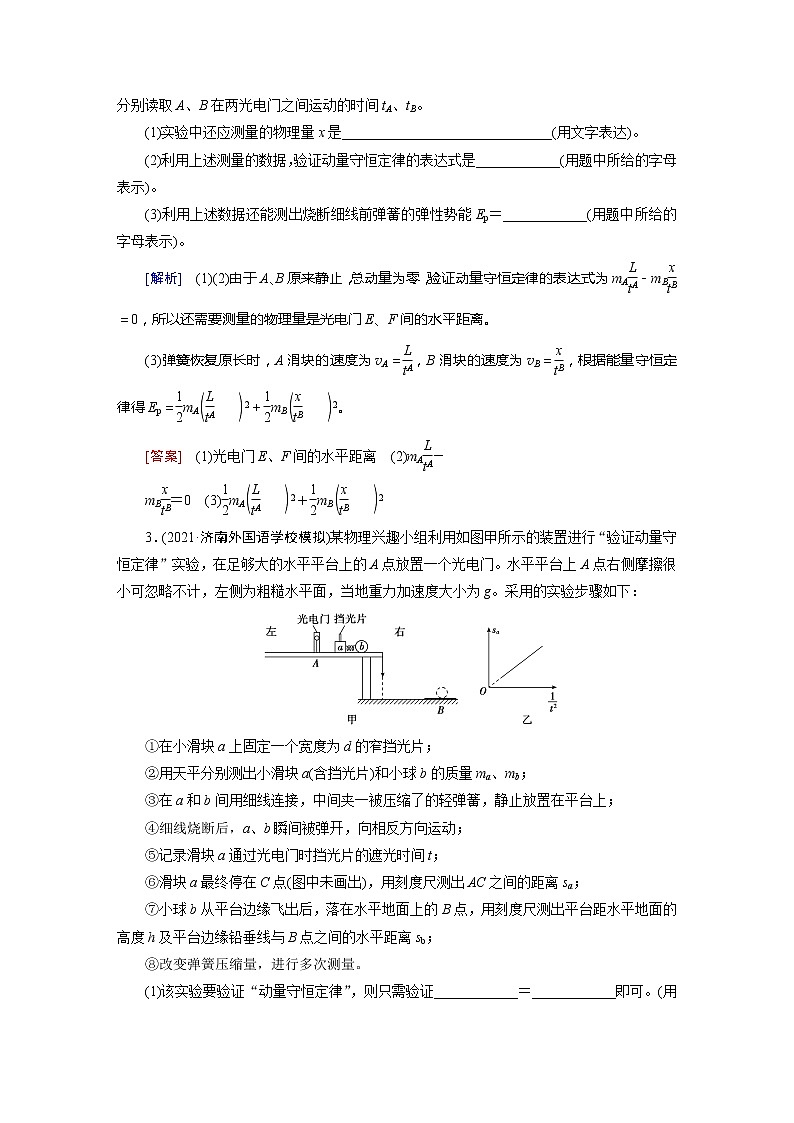 分别读取 A、B 在两光电门之间运动的时间 tA、tB。
(1)实验中还应测量的物理量 x 是______________________________(用文字表达)。
(2)利用上述测量的数据，验证动量守恒定律的表达式是____________(用题中所给的字母
表示)。
(3)利用上述数据还能测出烧断细线前弹簧的弹性势能 Ep＝____________(用题中所给的
字母表示)。
[解析] (1)(2)由于 A、B 原来静止，总动量为零，验证动量守恒定律的表达式为 mA L/tA－mB x/tB
＝0，所以还需要测量的物理量是光电门 E、F 间的水平距离。
(3)弹簧恢复原长时，A 滑块的速度为 vA＝L/tA，B 滑块的速度为 vB＝x/tB，根据能量守恒定
律得 Ep＝1/2 mA(L/tA)2＋1/2 mB(x/tB)2。
[答案] (1)光电门 E、F 间的水平距离 (2)mA L/tA－
mB x/tB＝0 (3)1/2 mA(L/tA)2＋1/2 mB(x/tB)2
3．(2021·济南外国语学校模拟)某物理兴趣小组利用如图甲所示的装置进行“验证动量守
恒定律”实验，在足够大的水平平台上的 A 点放置一个光电门。水平平台上 A 点右侧摩擦很
小可忽略不计，左侧为粗糙水平面，当地重力加速度大小为 g。采用的实验步骤如下：
光电门 挡光片
左 右 a b
A
B
甲
sa
O 1/t2
乙
①在小滑块 a 上固定一个宽度为 d 的窄挡光片；
②用天平分别测出小滑块 a(含挡光片)和小球 b 的质量 ma、mb；
③在 a 和 b 间用细线连接，中间夹一被压缩了的轻弹簧，静止放置在平台上；
④细线烧断后，a、b 瞬间被弹开，向相反方向运动；
⑤记录滑块 a 通过光电门时挡光片的遮光时间 t；
⑥滑块 a 最终停在 C 点(图中未画出)，用刻度尺测出 AC 之间的距离 sa；
⑦小球 b 从平台边缘飞出后，落在水平地面上的 B 点，用刻度尺测出平台距水平地面的
高度 h 及平台边缘铅垂线与 B 点之间的水平距离 sb；
⑧改变弹簧压缩量，进行多次测量。
(1)该实验要验证“动量守恒定律”，则只需验证____________＝____________即可。(用